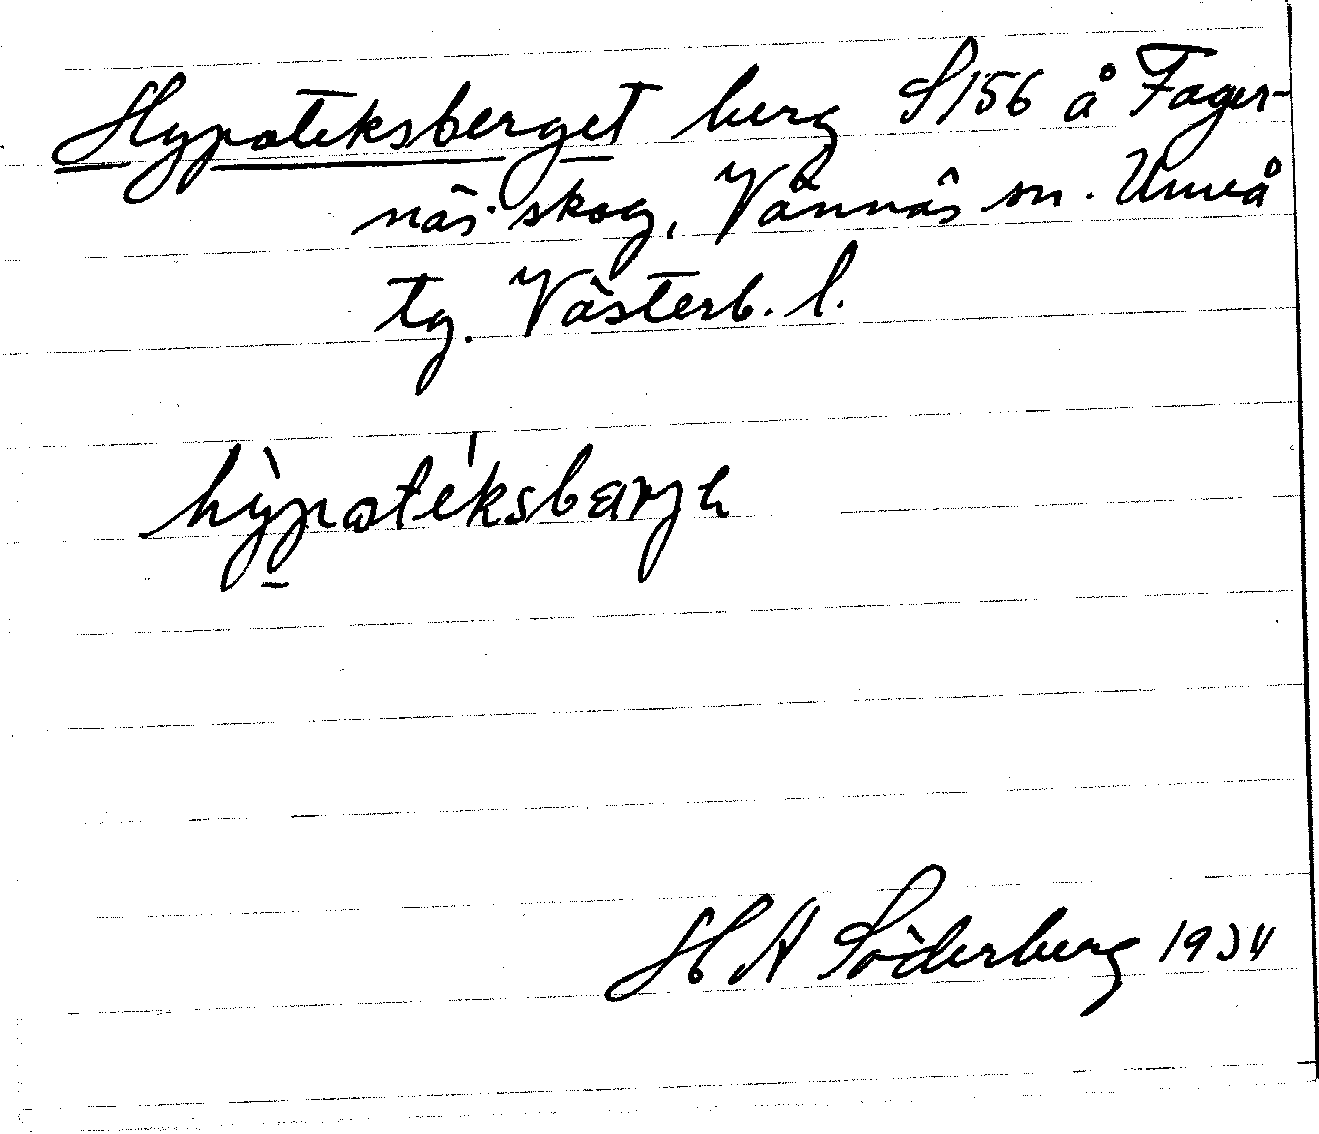 Hypoteksberget berg S156 å Fager-
näs skog, Vännäs sn. Umeå
tg. Västerb. l.
hỳpotéksbærjɛ
H A Söderberg 1934